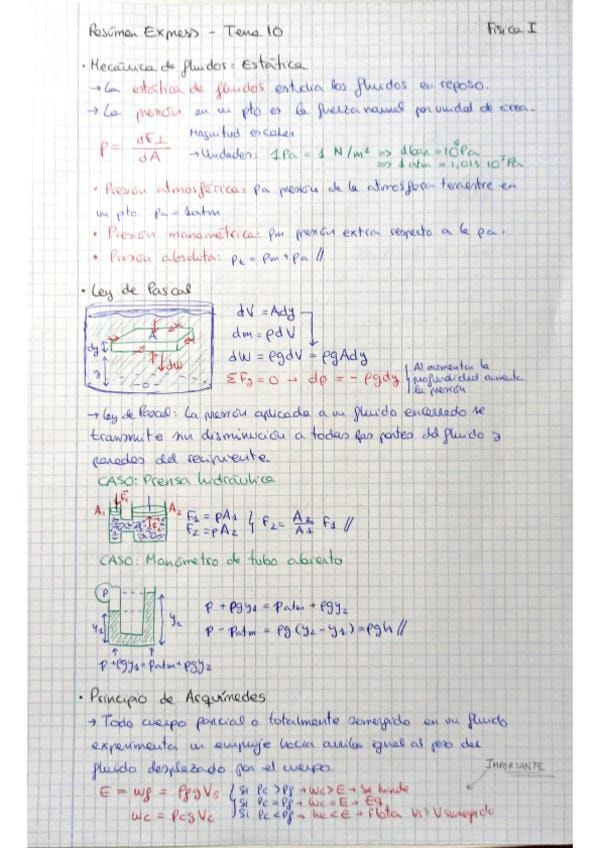 Resumen Express - Tema 10
Física I
· Mecánica de fluidos: Estática
→ La estática de fluidos estudia los fluidos en reposo.
→ La presión en un pto es la fuerza normal por unidad de área.
P = dF⊥/dA
Magnitud escalar
→ Unidades: 1Pa = 1 N/m² ⇒ 1bar = 10⁵Pa
⇒ 1atm = 1,013 10⁵Pa
• Presión atmosférica: pa presión de la atmósfera terrestre en
un pto. pa = 1atm
• Presión manométrica: pm presión extra respecto a la pa.
• Presión absoluta: pt = pm + pa //
· Ley de Pascal
dV = Ady
dm = ρdV
dw = ρgdV = ρgAdy
ΣFy = 0 → dp = - ρgdy
Al aumentar la
profundidad aumenta
la presión
A
dy
dw
y
0
→ Ley de Pascal: La presión aplicada a un fluido encerrado se
transmite sin disminución a todas las partes del fluido y
paredes del recipiente.
CASO: Prensa hidráulica
A1 F1 A2 F2
F1 = pA1
F2 = pA2
F2 = A2/A1 F1 //
CASO: Manómetro de tubo abierto
P
y1
y2
P + ρgy1 = Patm + ρgy2
P - Patm = ρg(y2 - y1) = ρgh //
P + ρgy1 = Patm + ρgy2
· Principio de Arquímedes
→ Todo cuerpo parcial o totalmente sumergido en un fluido
experimenta un empuje hacia arriba igual al peso del
fluido desplazado por el cuerpo.
IMPORTANTE
E = wf = ρfgVs
wc = ρcgVc
Si ρc > ρf → wc > E → Se hunde
Si ρc = ρf → wc = E → Eq
Si ρc < ρf → wc < E → Flota Vs = V sumergido